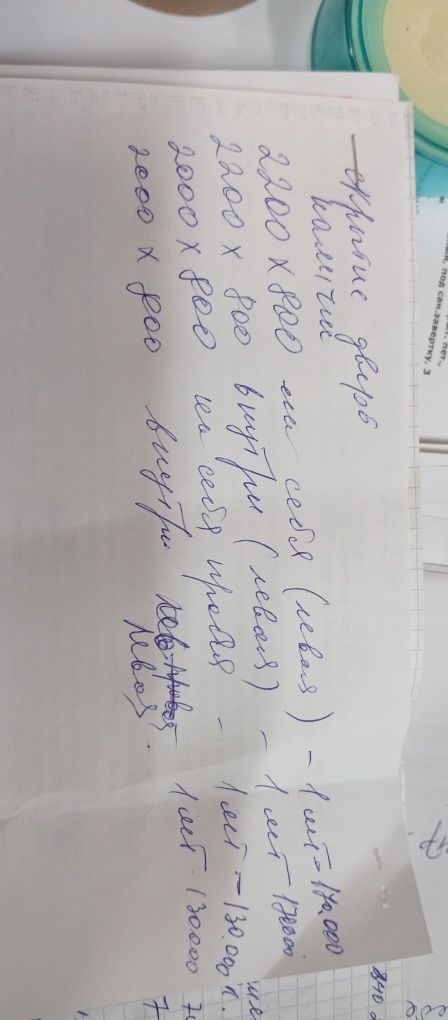 скрытые дверь
наличий
2200 x 800 на себя (левая) - 1 шт = 170,000
2200 x 800 внутри (левая) - 1 шт 170000
2000 x 800 на себя правая - 1 шт = 130.000
2000 x 800 внутри левая. 1 шт. 130000
под сан.завертку, 3